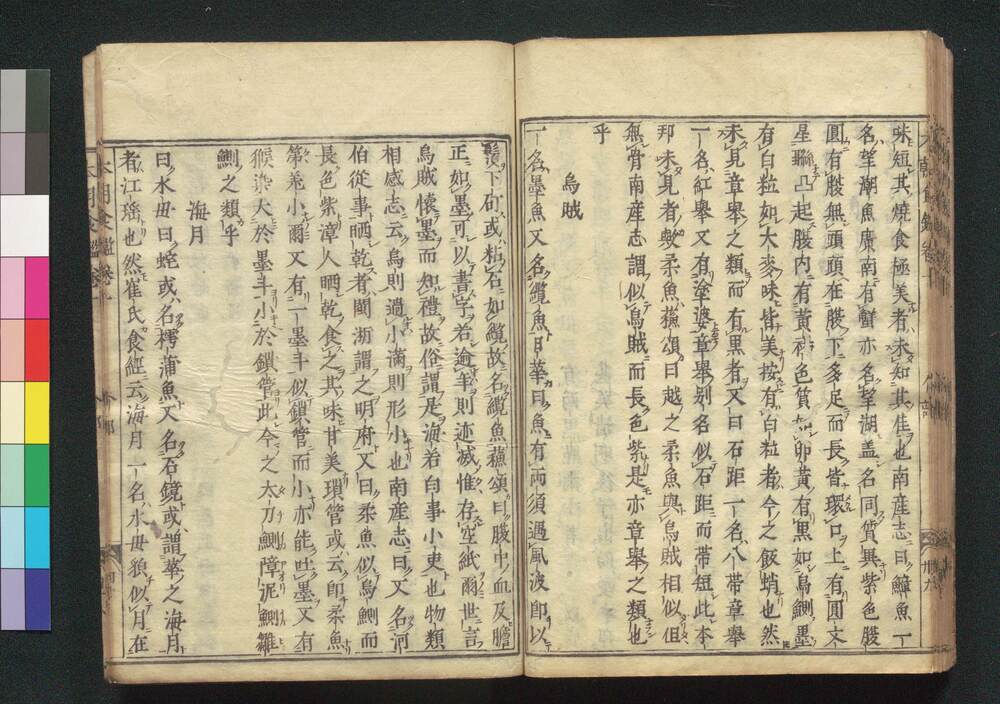 味短其燒食極美者未知其佳也南産志曰鱆魚一
名望潮魚廣南有蟹亦名望湖盖名同質異紫色腹
圓有腹無頭頭在腹下多足而長皆環口上有圓文
星聯凸起腹内有黄色質如卵黄有黒如烏鰂墨
有白粒如大麥味皆美按有白粒者今之飯蛸也然
未見章舉之類而有黒者又曰石距一名八帶章舉
一名紅舉又有塗婆章舉别名似石距而帶短此本
邦未見者歟柔魚蘓頌曰越之柔魚與烏賊相似但
無骨南産志謂似烏賊而長色紫是亦章舉之類也
乎
烏賊
一名墨魚又名纜魚日華曰魚有兩須遇風波即以
鬚下矴或粘石如纜故名纜魚蘓頌曰腹中血及膽
正如墨可以書字若逾年則迹滅惟存空紙爾世言
烏賊懷墨而知禮故俗謂是海若白事小吏也物類
相感志云烏則過小滿則形小也南産志曰又名河
伯從事晒乾者閩浙謂之明府又曰柔魚似烏鰂而
長色紫漳人晒乾食之其味甘美瑣管或云即柔魚
第差小爾又有一墨斗似鎖管而小亦能吐墨又有
猴染大於墨斗小於鎖管此今之太刀鰂障泥鰂雛
鰂之類乎
海月
曰水母曰蛇或名樗蒲魚又名石鏡或謂華之海月
者江瑤也然崔氏食經云海月一名水母狼似月在